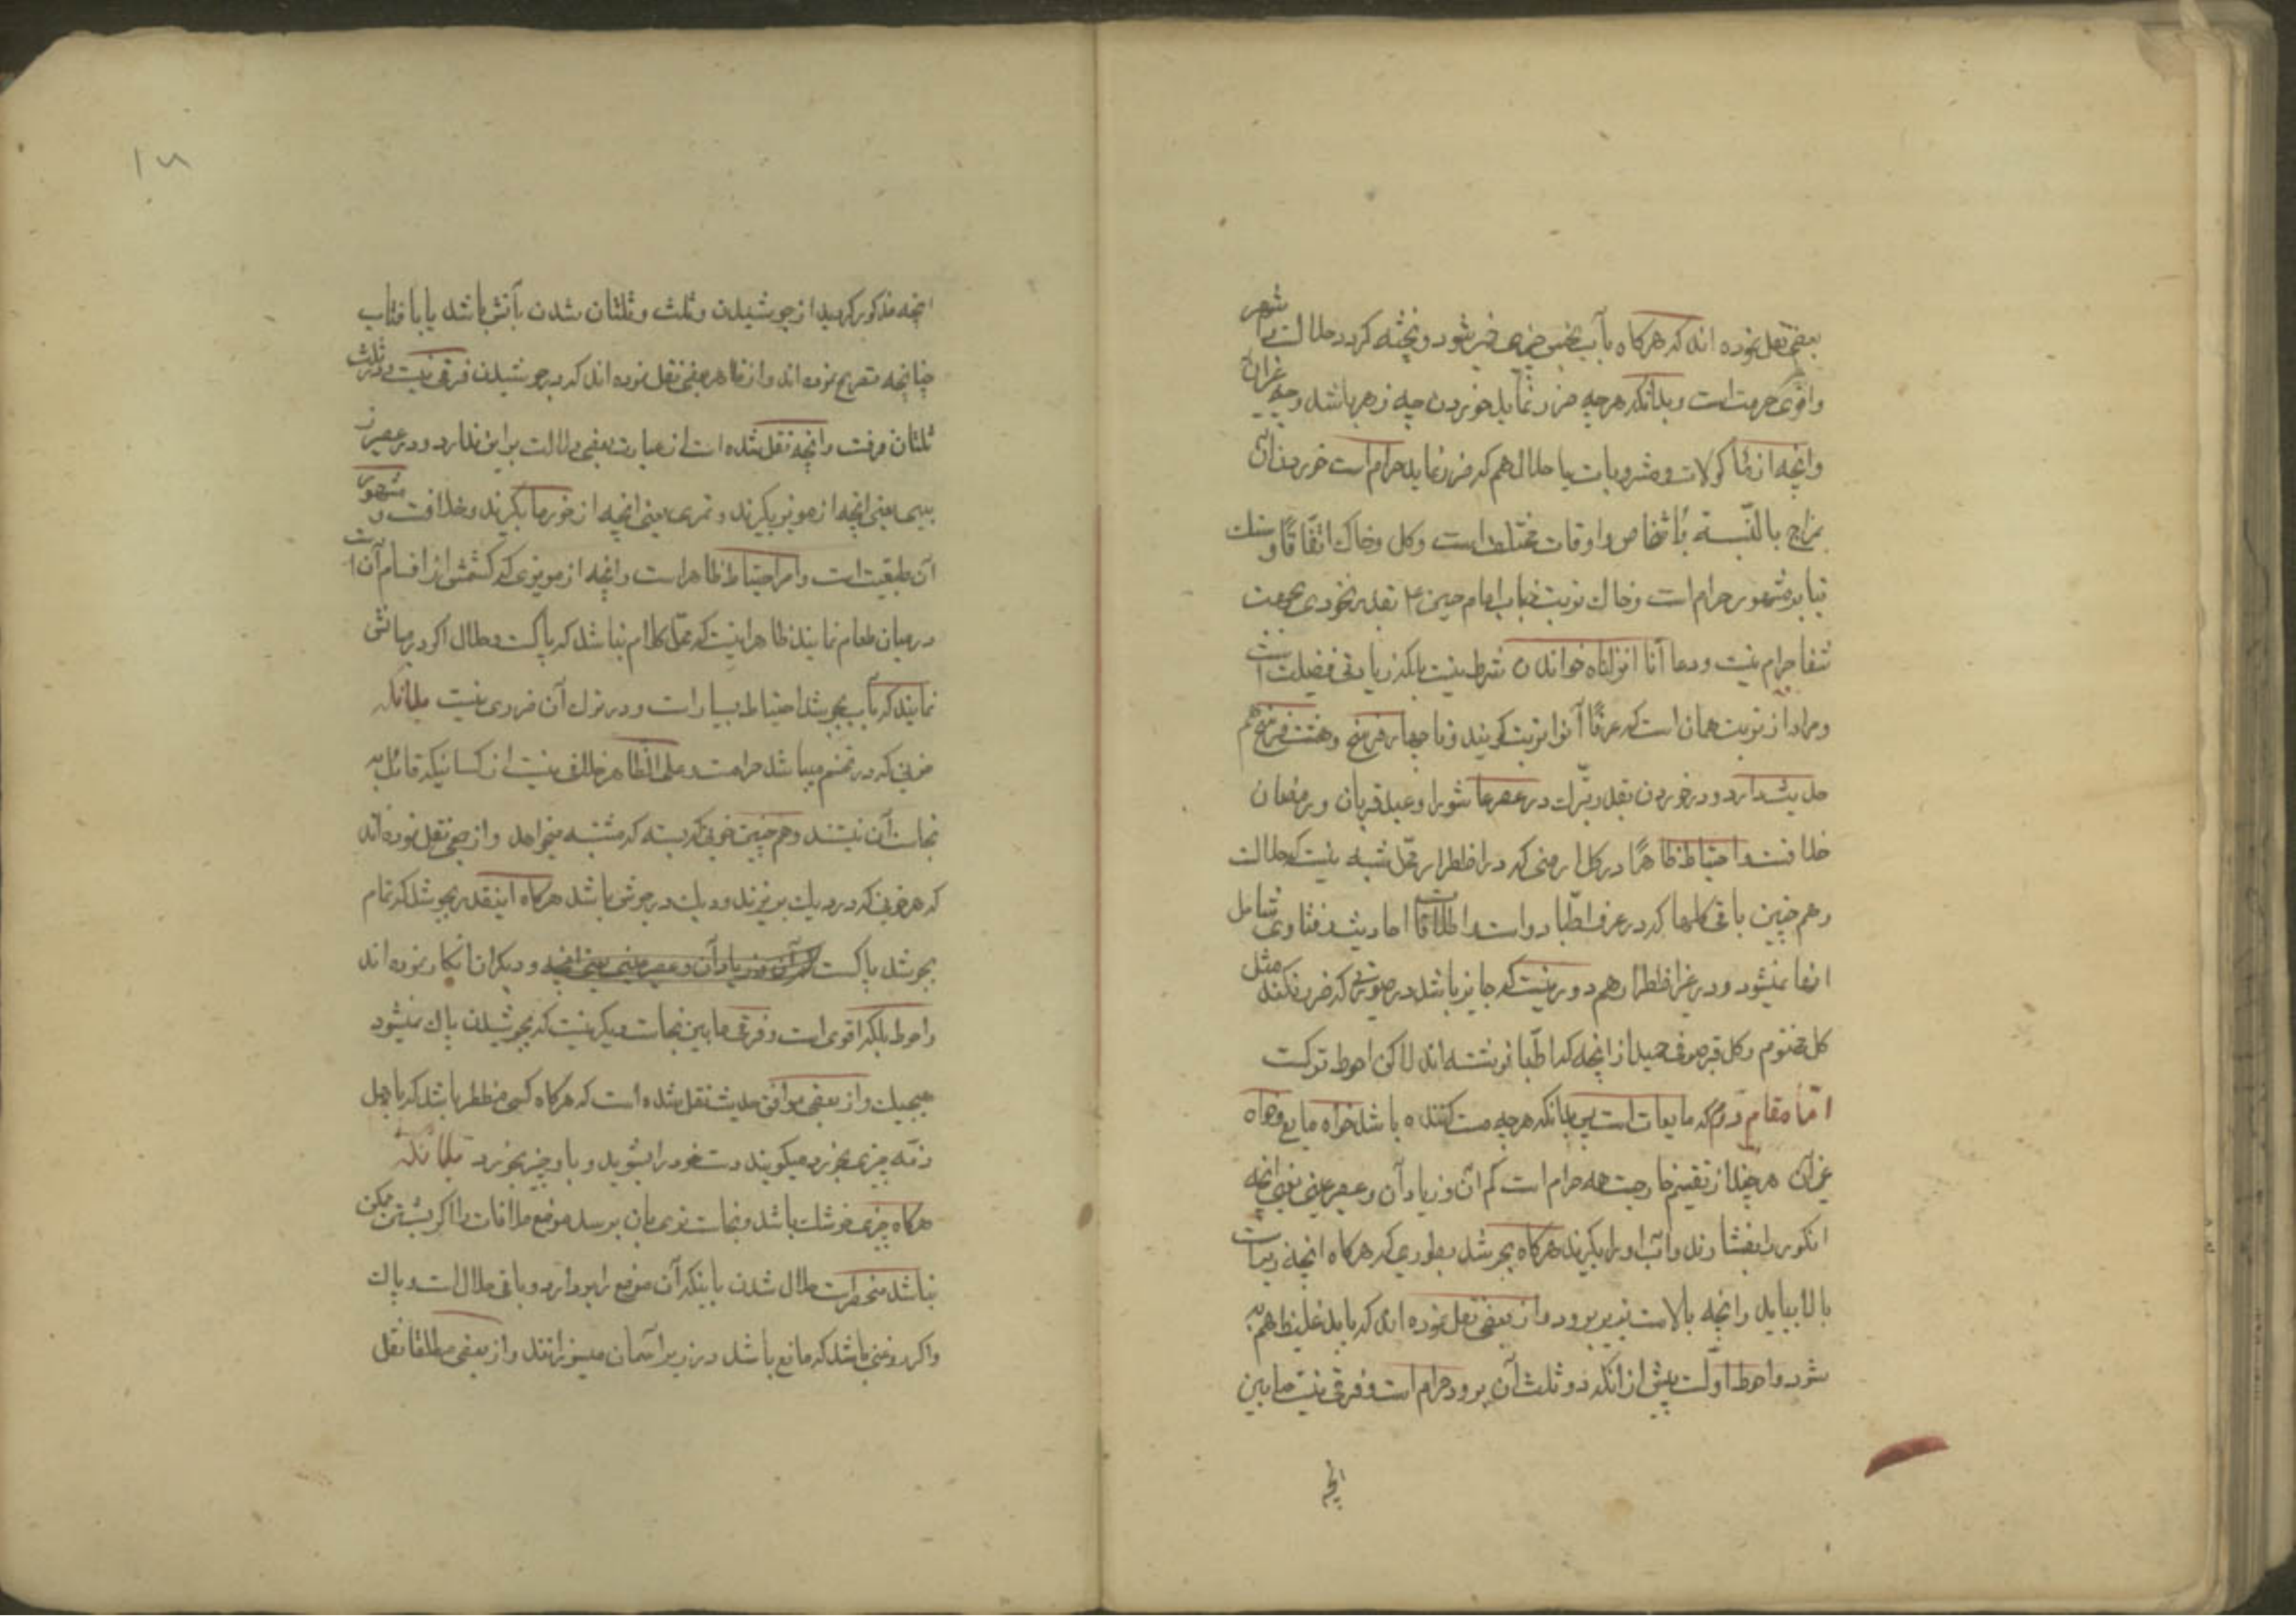 بعضی نقل نموده اند که هرکاه بآب نجس چیزی خمیر شود و پخته کردد حلال است شهر
واقوی حرمت است وبدانکه هرچه ضرر نماید خوردن چه زهر باشد وچه غیرآن
وانچه از ماکولات ومشروبات یا حلال هم که ضرر نماید حرام است خوردن آن
بمزاج بالنّسبة باشخاص واوقات مختلف است وکل وخاک اتفّاقًا وسنک
بنابر مشهور حرام است وخاک تربت جناب امام حسین ۴ بقدر نخودی بجهت
شفا حرام نیست ودعا انّا انزلناه خواندن شرط نیست بلکه زیادتی فضیلت است
ومراد از تربت همان است که عرفًا آنرا تربت کویند وتا چهار فرسخ وهشت فرسخ هم
حدیث دارد ودر خوردن بقصد تبرّک در عصر عاشورا وعید قربان ورمضان
خلافست واحتیاط ظاهرًا در کل ارمنی که در اضطرار محّل شبه نیست که حلال است
وهم چنین باقی کلها که در عرف اطّبا دواست واطلاقات احادیث وفتاوی شامل
انها نمیشود ودر غیر اضطرار هم دور نیست که جایز باشد در صورتی که ضرر نکند مثل
کل مختوم وکل قبرصی وغیر از انچه که اطّبا نوشته اند لاکن احوط ترکست
امّا مقام دوّم که مایعات است پس بدانکه هرچه مست کننده باشد خواه مایع وخواه
غیرآن هرچند از تقسیم خارجست همه حرام است کم آن وزیاد آن وعصیر عنبی یعنی انچه
انکور را بفشارند وآب اورا بکیرند هرکاه بجوشد بطوری که هرکاه انچه زیر است
بالا بیاید وانچه بالاست بزیر برود واز بعضی نقل نموده اند که باید غلیظ هم
شود واحوط اوّلست پیش از انکه دو ثلث آن برود حرام است وفرقی نیست مابین
انچه
انچه مذکور کردید از جوشیدن وثلث وثلثان شدن بآتش باشد یا بافتاب
چنانچه تصریح نموده اند واز ظاهر بعضی نقل نموده اند که در جوشیدن فرقی نیست ودر ثلث
ثلثان فرقست وانچه نقل شده است از عبارت بعضی دلالت براین ندارد ودر عصیر
زبیبی یعنی انچه از مویز بکیرند وتمری یعنی انچه از خورما بکیرند وخلافست ومشهور
آن طیّبست است وامر احتیاط ظاهر است وانچه از مویزی که کشمش از اقسام آن است
درمیان طعام نمایند ظاهر اینست که محّل کلام نباشد که پاکست وحلال اکر در میانش
نمایند که بآب بجوشد احتیاط بسیار است ودر ترک آن ضروری نیست بدانکه
خونی که در تخم میباشد حرامست وعلی الظّاهر خلاف نیست از کسانیکه قائل به
نجاست آن نیستند وهم چنین خونی که بسته که مشتبه میخواهد واز جمعی نقل نموده اند
که هر خونی که در دیک بریزند ودیک در جوش باشد هرکاه اینقدر بجوشد که تمام
بجوشد پاکست کم آن وزیاد آن وعصیر عنبی یعنی انچه ودیکران انکار نموده اند
واحوط بلکه اقوی است وفرقی مابین نجاست دیکر نیست که بجوشیدن پاک نمیشود
هیچیک واز بعضی موافق حدیث نقل شده است که هرکاه کسی مضطر باشد که با اهل
ذمّه چیزی بخورد میکویند دست خود را بشوید وبا او چیز بخورد بدانکه
هرکاه چیزی خوشک باشد ونجاست تری بان برسد موضع ملاقات را اکر بشستن ممکن
نباشد منحصر است حلال شدن باینکه آن موضع را بردارد وباقی حلال است وپاک
واکر روغنی باشد که مایع باشد در زیر آسمان میسوزانند واز بعضی مطلقا نقل